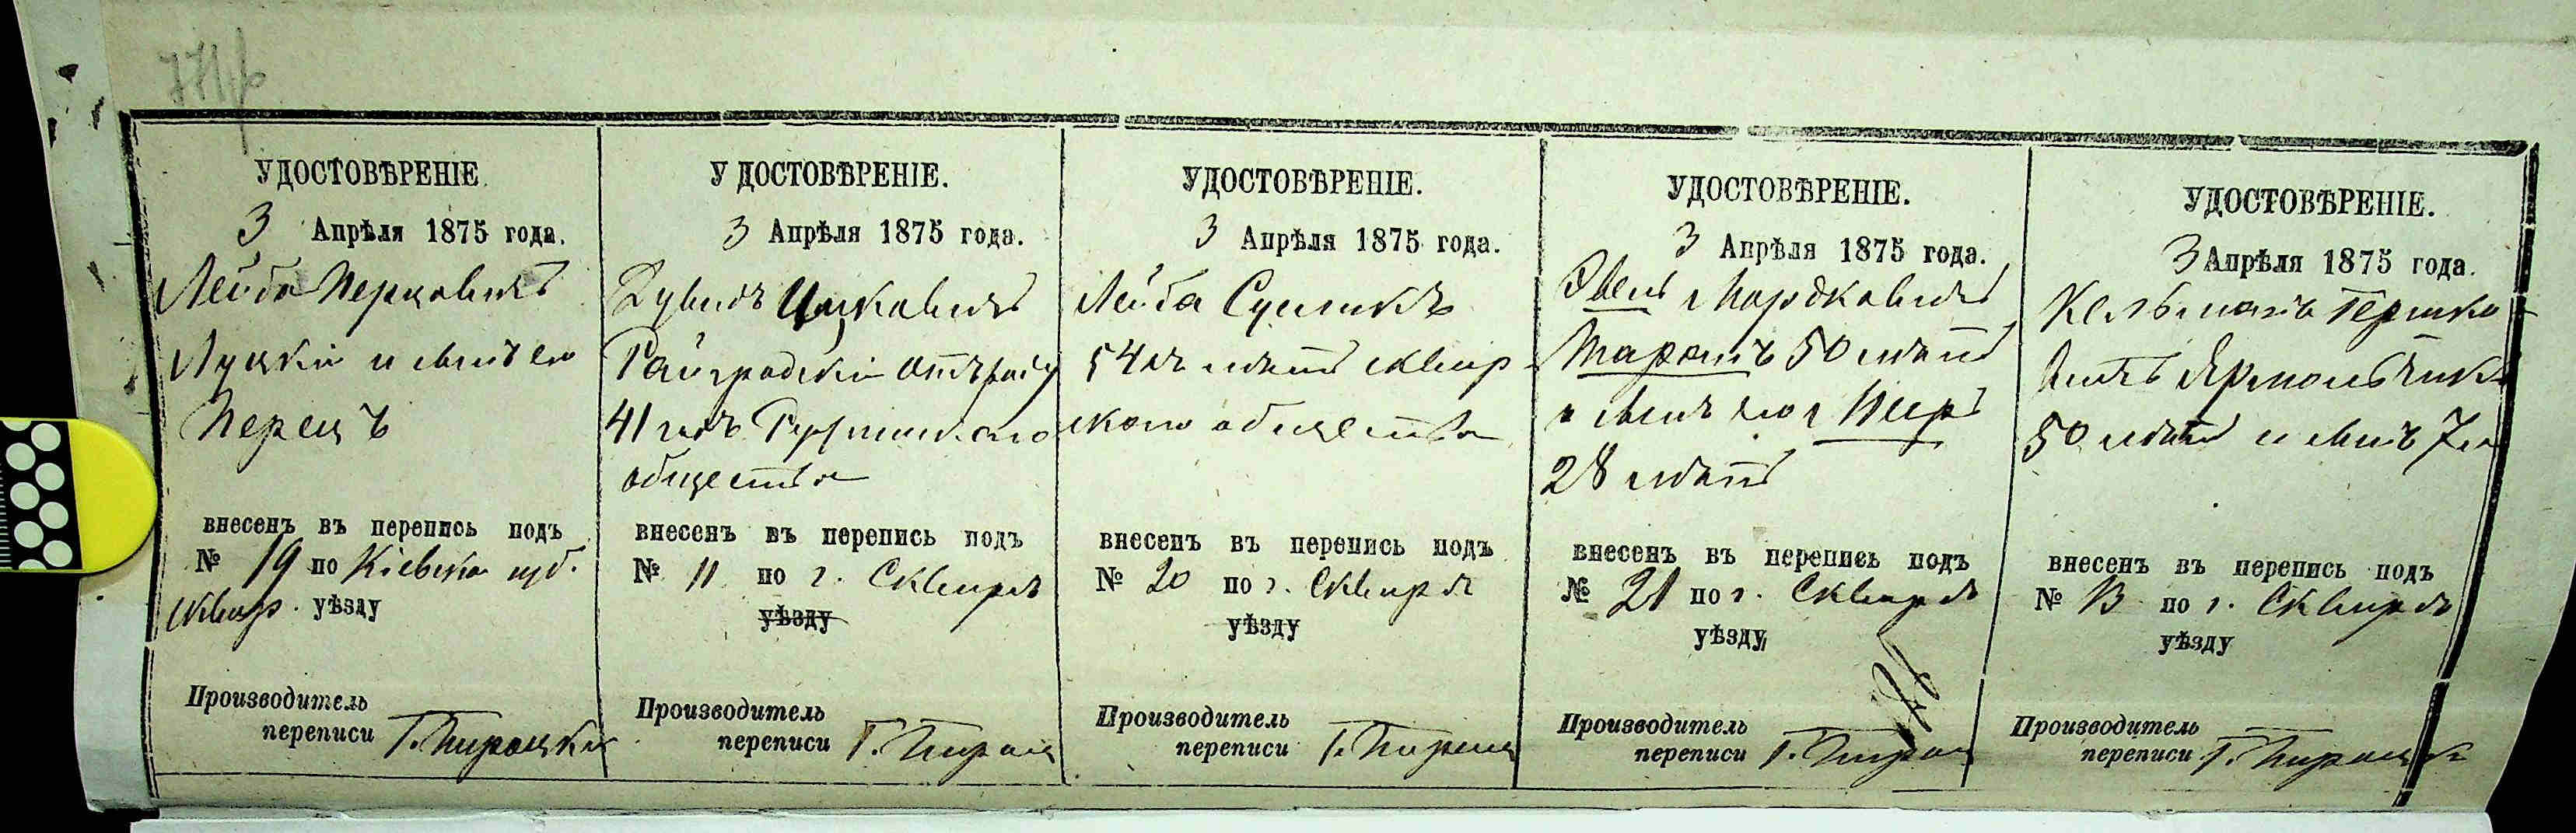 УДОСТОВѢРЕНІЕ
3 Апрѣля 1875 года.
Лейба Перцовичъ
Луцкій и сынъ его
Перецъ
внесенъ въ перепись подъ
№ 19 по Кіевской губ.
Сквир. уѣзду
Производитель
переписи Г. Пироцкій
УДОСТОВѢРЕНІЕ.
3 Апрѣля 1875 года.
Дувидъ Ицковичъ
Райгродскій
41 годъ Ружинскаго
общества
внесенъ въ перепись подъ
№ 11 по г. Сквирѣ
уѣзду
Производитель
переписи Г. Пироц
УДОСТОВѢРЕНІЕ.
3 Апрѣля 1875 года.
Лейба Сушикъ
54 лѣтъ сквир
скаго общества
внесенъ въ перепись подъ
№ 20 по г. Сквирѣ
уѣзду
Производитель
переписи Г. Пироц
УДОСТОВѢРЕНІЕ.
3 Апрѣля 1875 года.
Мордковичъ
50 лѣтъ
и сынъ его
28 лѣтъ
внесенъ въ перепись подъ
№ 21 по г. Сквирѣ
уѣзду
Производитель
переписи Г. Пироц
УДОСТОВѢРЕНІЕ.
3 Апрѣля 1875 года.
Кельманъ Гершко
вичъ Ярмольчикъ
50 лѣтъ и сынъ
внесенъ въ перепись подъ
№ 13 по г. Сквирѣ
уѣзду
Производитель
переписи Г. Пироцкій